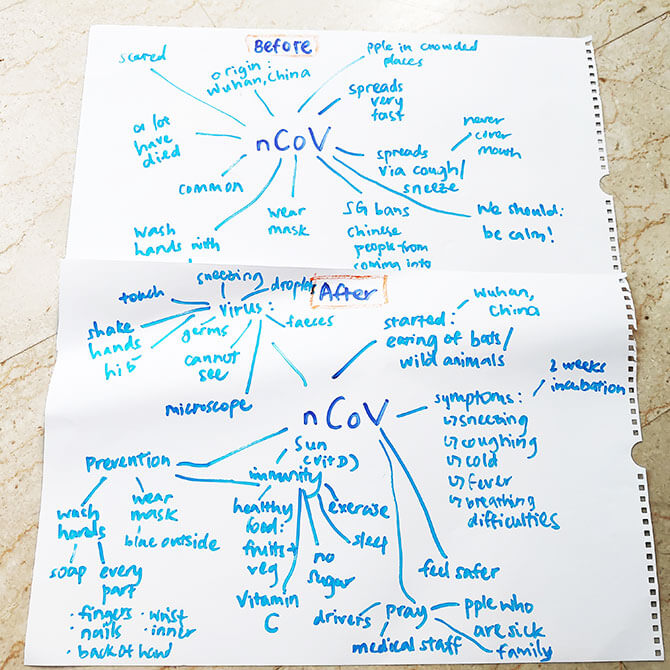 Before
scared
origin:
Wuhan, China
pple in crowded
places
spreads
very
fast
a lot
have
died
nCoV
never
cover
mouth
spreads
via cough/
sneeze
common
wash
hands with
wear
mask
SG bans
Chinese
people from
coming into
We should:
be calm!
After
sneezing
droplets
touch
virus:
shake
hands
hi 5
germs
faeces
cannot
see
microscope
started:
eating of bats/
wild animals
Wuhan,
China
nCoV
symptoms:
↳ sneezing
↳ coughing
↳ cold
↳ fever
↳ breathing
difficulties
2 weeks
incubation
prevention
wash
hands
wear
mask
blue outside
soap
every
part
• fingers • wrist
• nails • inner
• back of hand
sun
(vit D)
immunity
healthy
food:
fruits +
veg
vitamin
C
no
sugar
sleep
exercise
feel safer
pray
drivers
medical staff
pple who
are sick
family